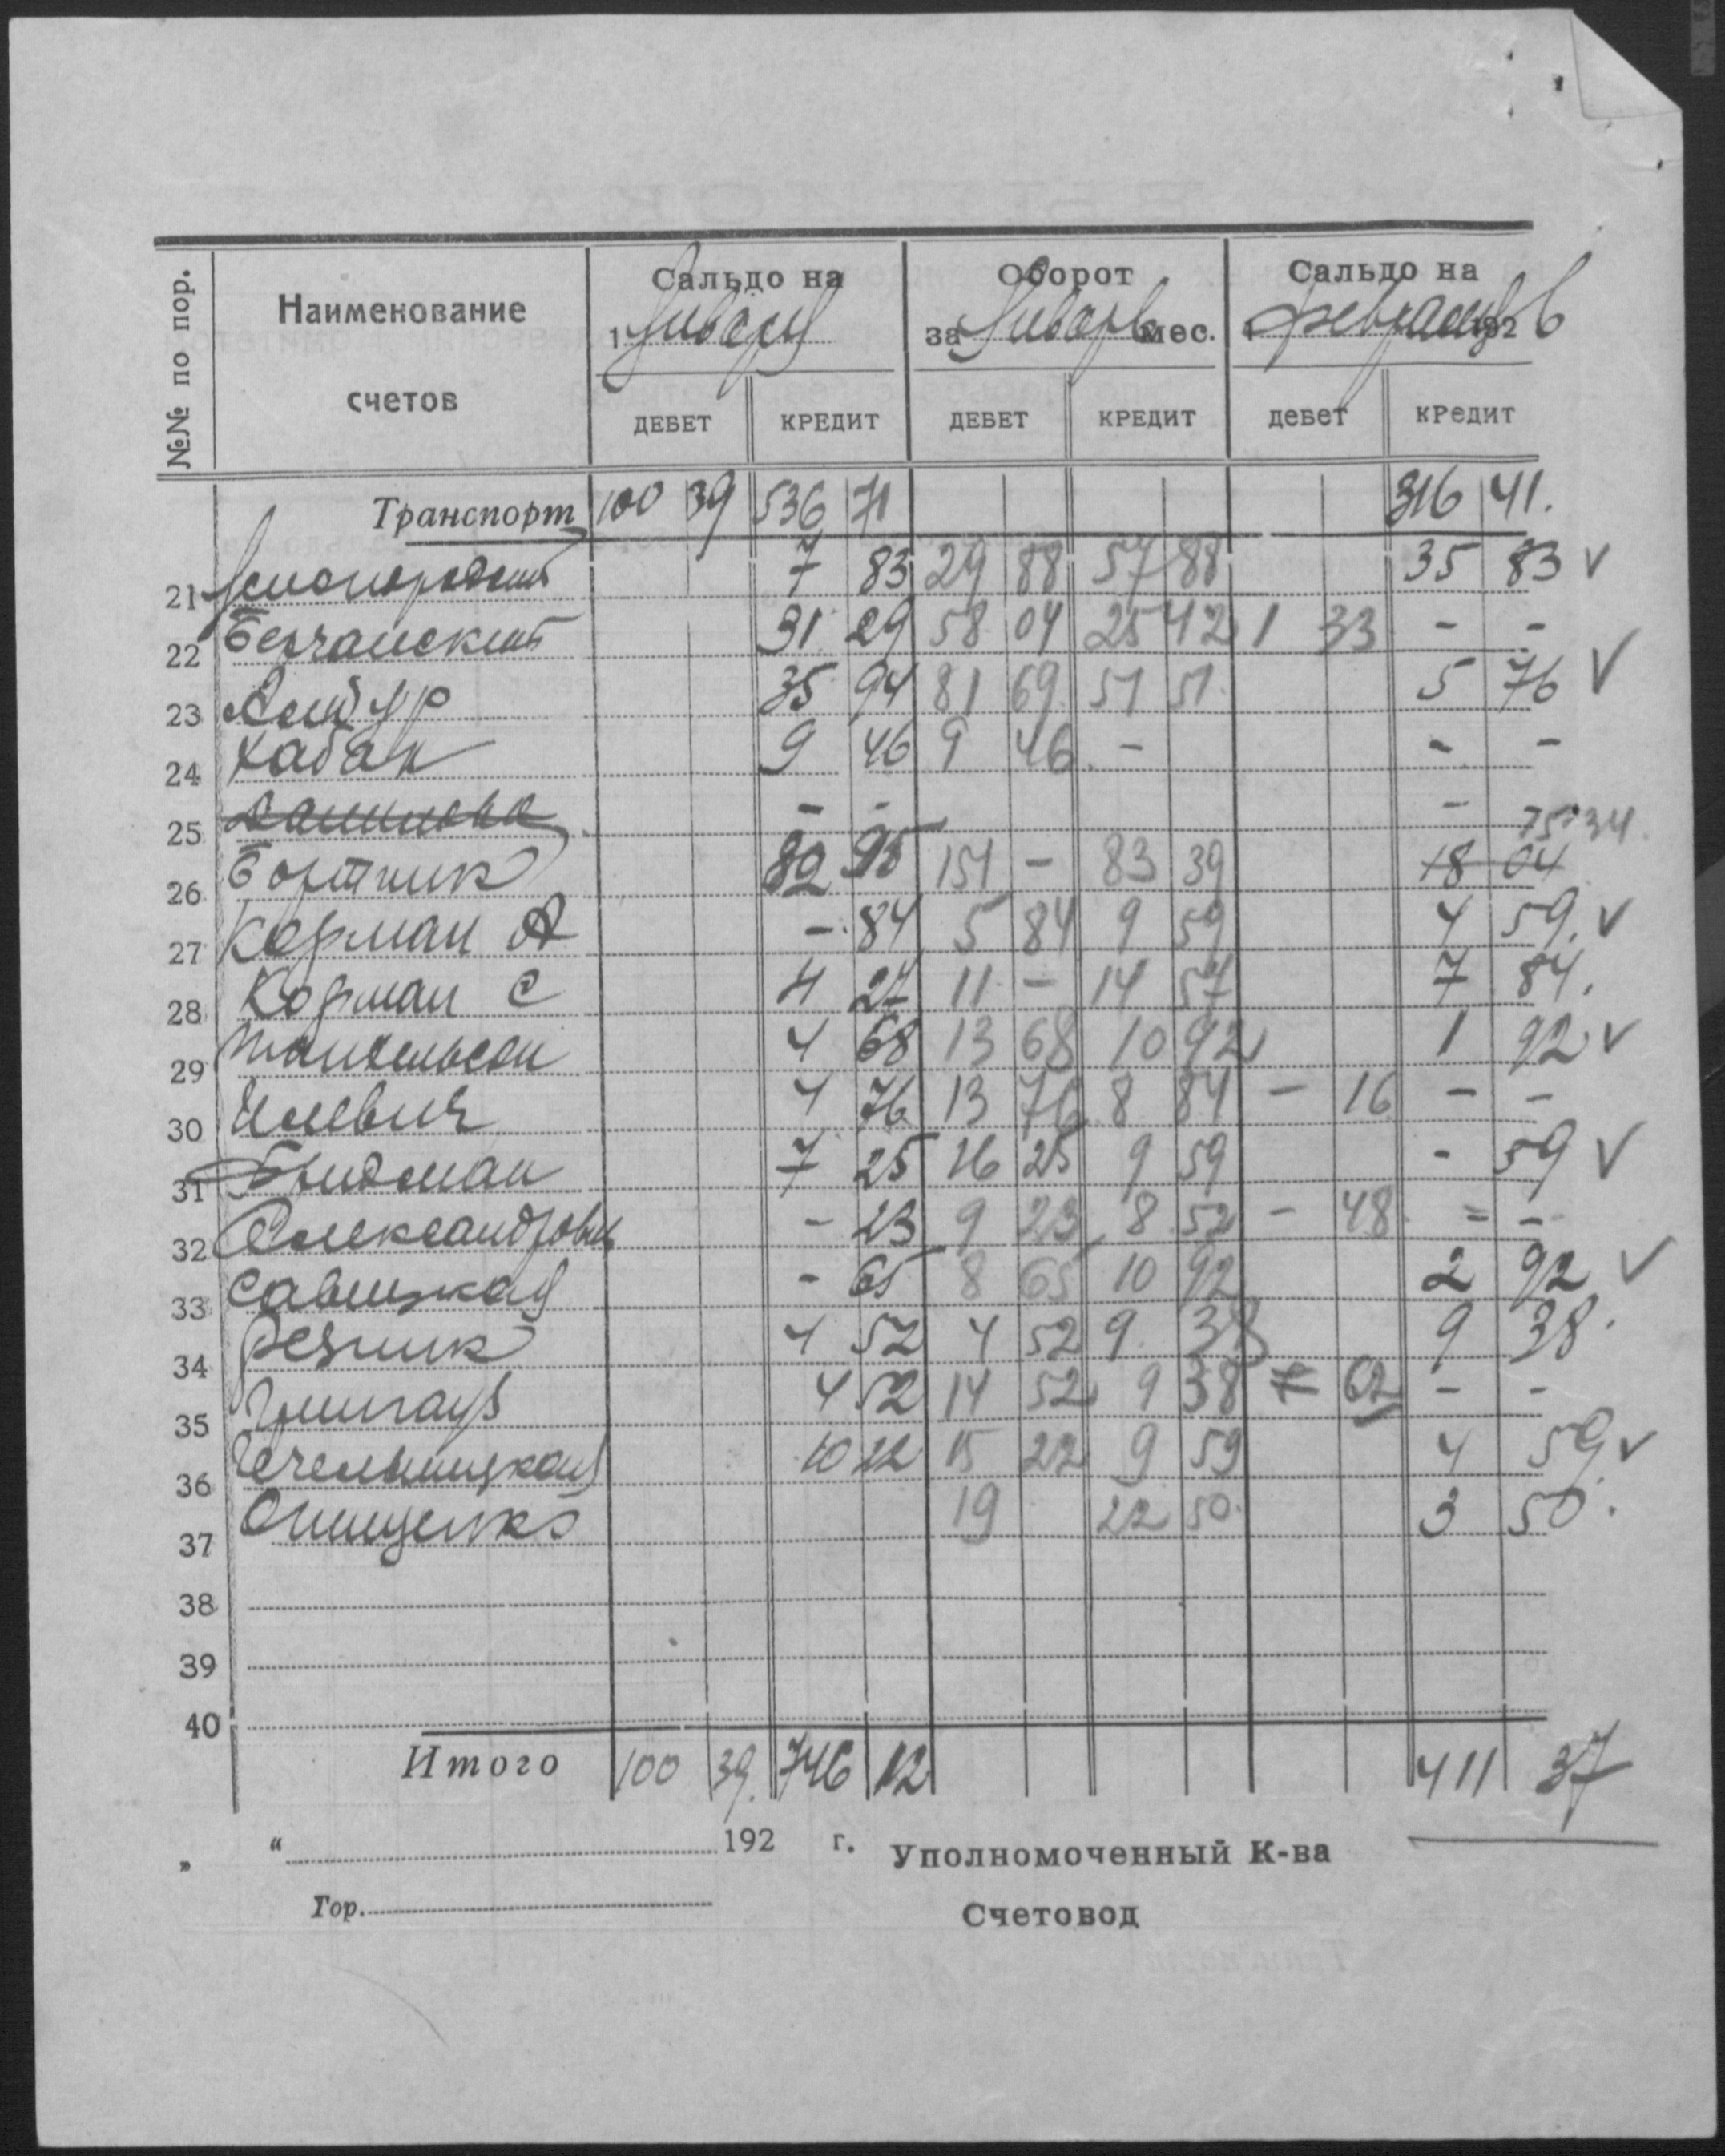 №№ по пор.
Наименование счетов
Сальдо на 1 Января
Оборот за Январь мес.
Сальдо на 1 февраля 192 6
ДЕБЕТ КРЕДИТ ДЕБЕТ КРЕДИТ дебет кредит
Транспорт 100 39 536 71 316 41.
21 7 83 29 88 57 88 35 83 ✓
22 31 29 58 04 25 42 1 33 - -
23 35 94 81 69 51 51 5 76 ✓
24 Хабак 9 46 9 46 - - -
25 - - -
75 34
26 Бортник 82 95 151 - 83 39 18 04
27 Корман А - 84 5 84 9 59 4 59 ✓
28 Корман С 4 27 11 - 14 57 7 84.
29 4 68 13 68 10 92 1 92 ✓
30 4 76 13 76 8 84 - 16 - -
31 7 25 16 25 9 59 - 59 ✓
32 - 23 9 23 8 52 - 48 - -
33 Савицкая - 65 8 65 10 92 2 92 ✓
34 Резник 4 52 4 52 9 38 9 38.
35 4 52 14 52 9 38 62 - -
36 Чечельницкая 10 22 15 22 9 59 4 59 ✓
37 Онищенко 19 22 50 3 50.
38
39
40
Итого 100 39 746 12 411 37
„ “ 192 г. Уполномоченный К-ва
Гор. Счетовод